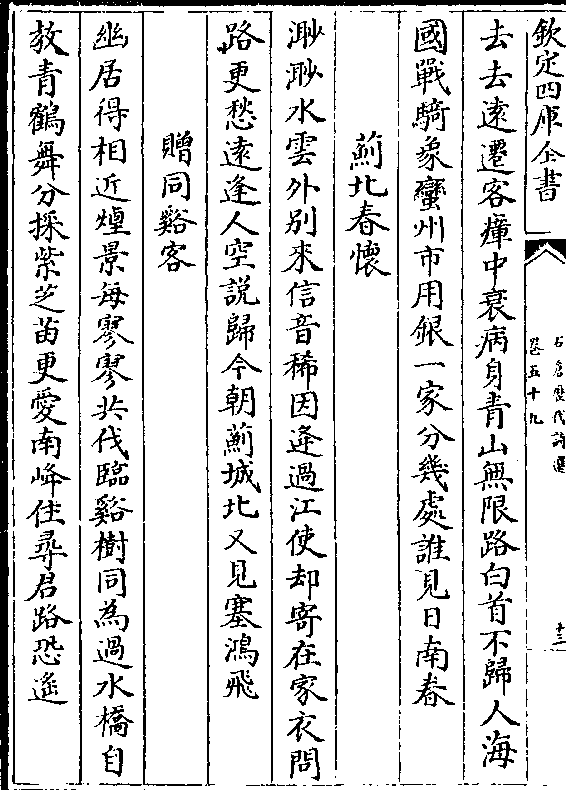 欽定四庫全書
石倉歷代詩選
卷五十九
十三
去去遠遷客瘴中衰病身青山無限路白首不歸人海
國戰騎象蠻州市用銀一家分幾處誰見日南春
薊北春懷
渺渺水雲外别來信音稀因逢過江使却寄在家衣問
路更愁遠逢人空說歸今朝薊城北又見塞鴻飛
贈同谿客
幽居得相近煙景每寥寥共伐臨谿樹同為過水橋自
教青鶴舞分採紫芝苗更愛南峰住尋君路恐遙